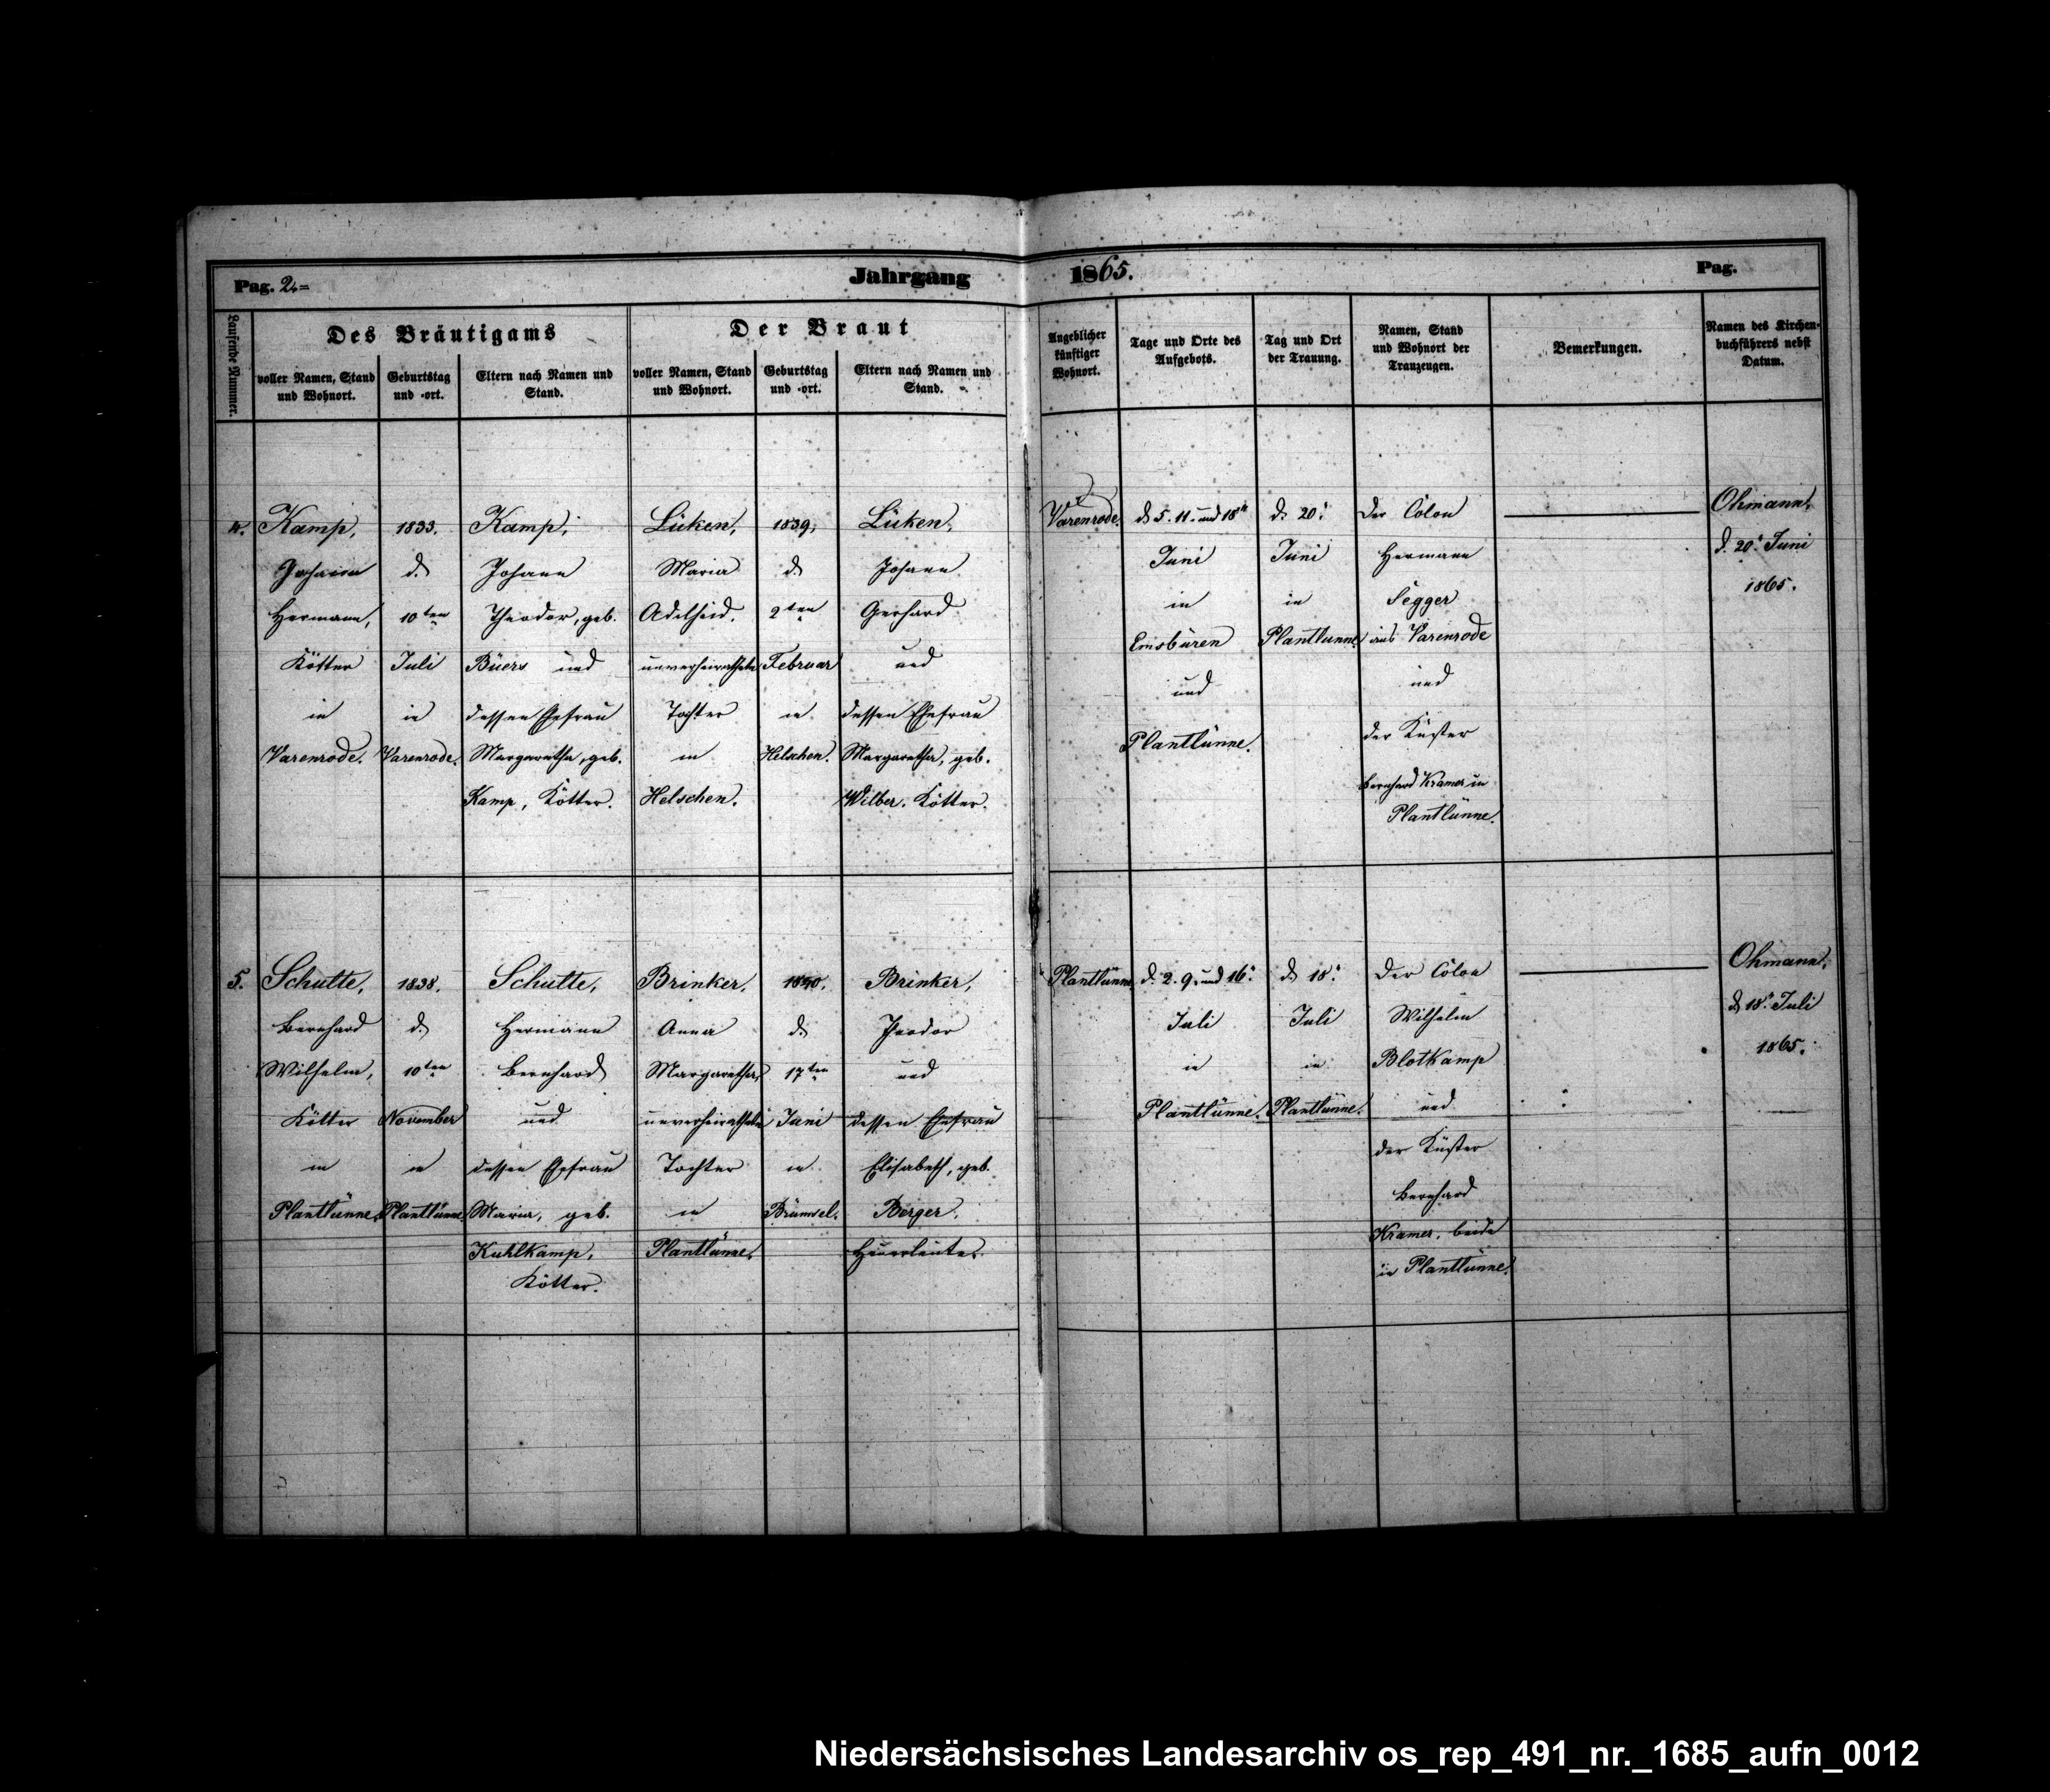 Pag. 2.=
Jahrgang 1865.
Pag.
Laufende Nummer.
Des Bräutigams
voller Namen, Stand
und Wohnort.
Geburtstag
und -ort.
Eltern nach Namen und
Stand.
Der Braut
voller Namen, Stand
und Wohnort.
Geburtstag
und -ort.
Eltern nach Namen und
Stand.
Angeblicher
künftiger
Wohnort.
Tage und Orte des
Aufgebots.
Tag und Ort
der Trauung.
Namen, Stand
und Wohnort der
Trauzeugen.
Bemerkungen.
Namen des Kirchen-
buchführers nebst
Datum.
4.
Kamp,
Johann
Hermann,
Kötter
in
Varenrode.
1833.
d.
10ten
Juli
in
Varenrode.
Kamp,
Johann
Theodor, geb.
Büers und
dessen Ehefrau
Margaretha, geb.
Kamp, Kötter.
Lüken,
Maria
Adelheid,
unverheirathete
Tochter
in
Helschen.
1839,
d.
2ten
Februar
in
Helschen.
Lüken,
Johann
Gerhard
und
dessen Ehefrau
Margaretha, geb.
Wilber. Kötter.
Varenrode.
d. 5. 11. und 18t
Juni
in
Emsbüren
und
Plantlünne.
d. 20.
Juni
in
Plantlünne
Der Colon
Hermann
Segger
aus Varenrode
und
der Küster
Bernhard Kramer in
Plantlünne.
Ohmann,
d. 20. Juni
1865.
5.
Schulte,
Bernhard
Wilhelm,
Kötter
in
Plantlünne.
1838.
d.
10ten
November
in
Plantlünne
Schulte,
Hermann
Bernhard
und
dessen Ehefrau
Maria, geb.
Kuhlkamp,
Kötter.
Brinker,
Anna
Margaretha,
unverheirathete
Tochter
in
Plantlünne.
1840.
d.
17ten
Juni
in
Brümsel.
Brinker,
Theodor
und
dessen Ehefrau
Elisabeth, geb.
Berger,
Heuerleute.
Plantlünne
d. 2. 9. und 16.
Juli
in
Plantlünne.
d. 18.
Juli
in
Plantlünne.
Der Colon
Wilhelm
Blotkamp
und
der Küster
Bernhard
Kramer, beide
in Plantlünne.
Ohmann,
d. 18. Juli
1865.
Niedersächsisches Landesarchiv os_rep_491_nr._1685_aufn_0012